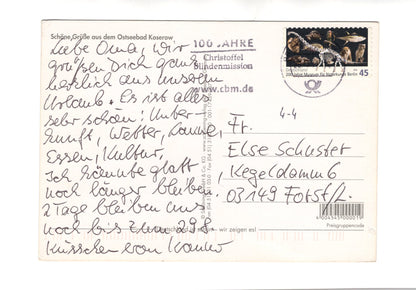 Schöne Grüße aus dem Ostseebad Koserow
Liebe Oma, wir
grüßen Dich ganz
herzlich aus unserem
Urlaub. Es ist alles
sehr schön: Unter-
kunft, Wetter, Laune,
Essen, Kultur,
Ich könnte glatt
noch länger bleiben.
2 Tage bleiben uns
noch bis zum 29.8.
Küsschen von
100 JAHRE
Christoffel
Blindenmission
www.cbm.de
200 Jahre Museum für Naturkunde Berlin
45
4-4
Fr.
Else Schuster
Kegeldamm 6
03149 Forst/L.
4004343000019
Preisgruppencode